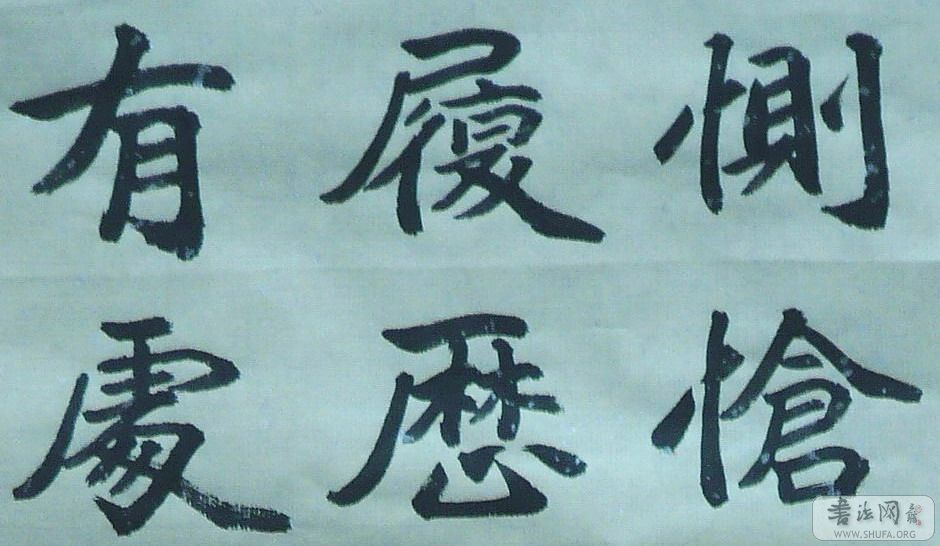 惻愴
履歷
有處
书法网
WWW.SHUFA.ORG